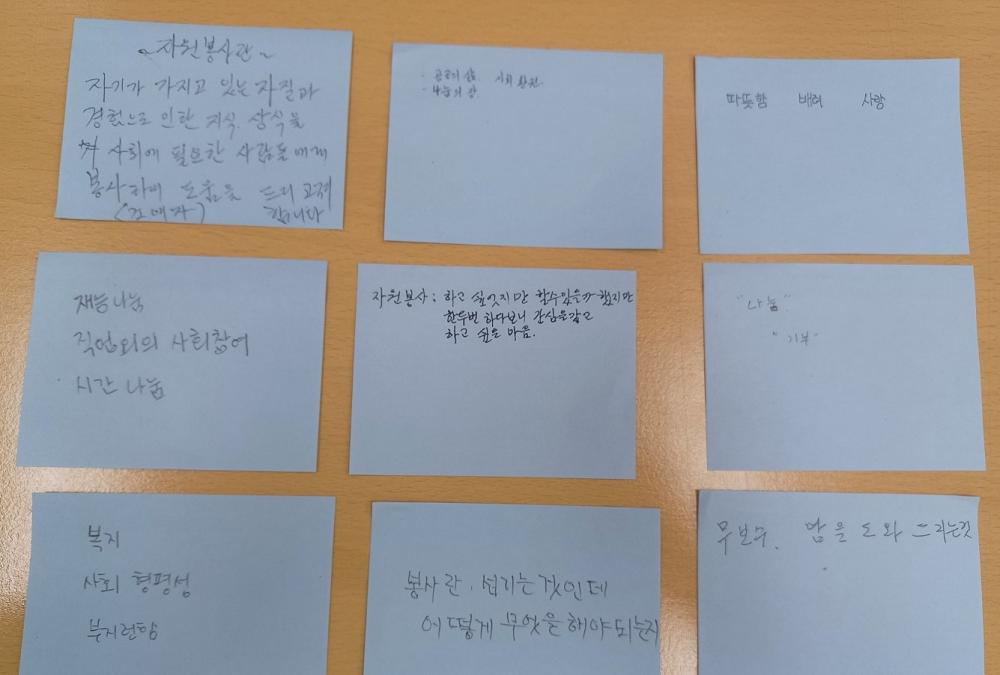 ~자원봉사란~
자기가 가지고 있는 자질과
경험으로 인한 지식. 상식을
사회에 필요한 사람들에게
봉사하며 도움을 드리고져
합니다
나눔의 장
따뜻함 배려 사랑
재능나눔
직업외의 사회참여
시간 나눔
자원봉사: 하고 싶었지만 할수있을까 했지만
한두번 하다보니 관심을갖고
하고 싶은 마음.
"나눔"
"기부"
복지
사회 형평성
부지런함
봉사란. 섬기는것인데
어떻게 무엇을 해야되는지
무보수. 남을 도와 드리는것